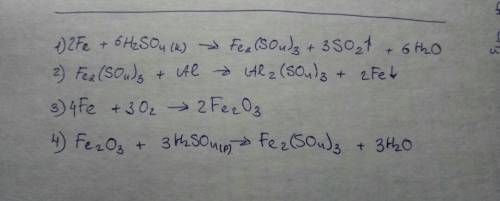 1) 2Fe + 6H₂SO₄(к) → Fe₂(SO₄)₃ + 3SO₂↑ + 6H₂O
2) Fe₂(SO₄)₃ + Al → Al₂(SO₄)₃ + 2Fe↓
3) 4Fe + 3O₂ → 2Fe₂O₃
4) Fe₂O₃ + 3H₂SO₄(р) → Fe₂(SO₄)₃ + 3H₂O